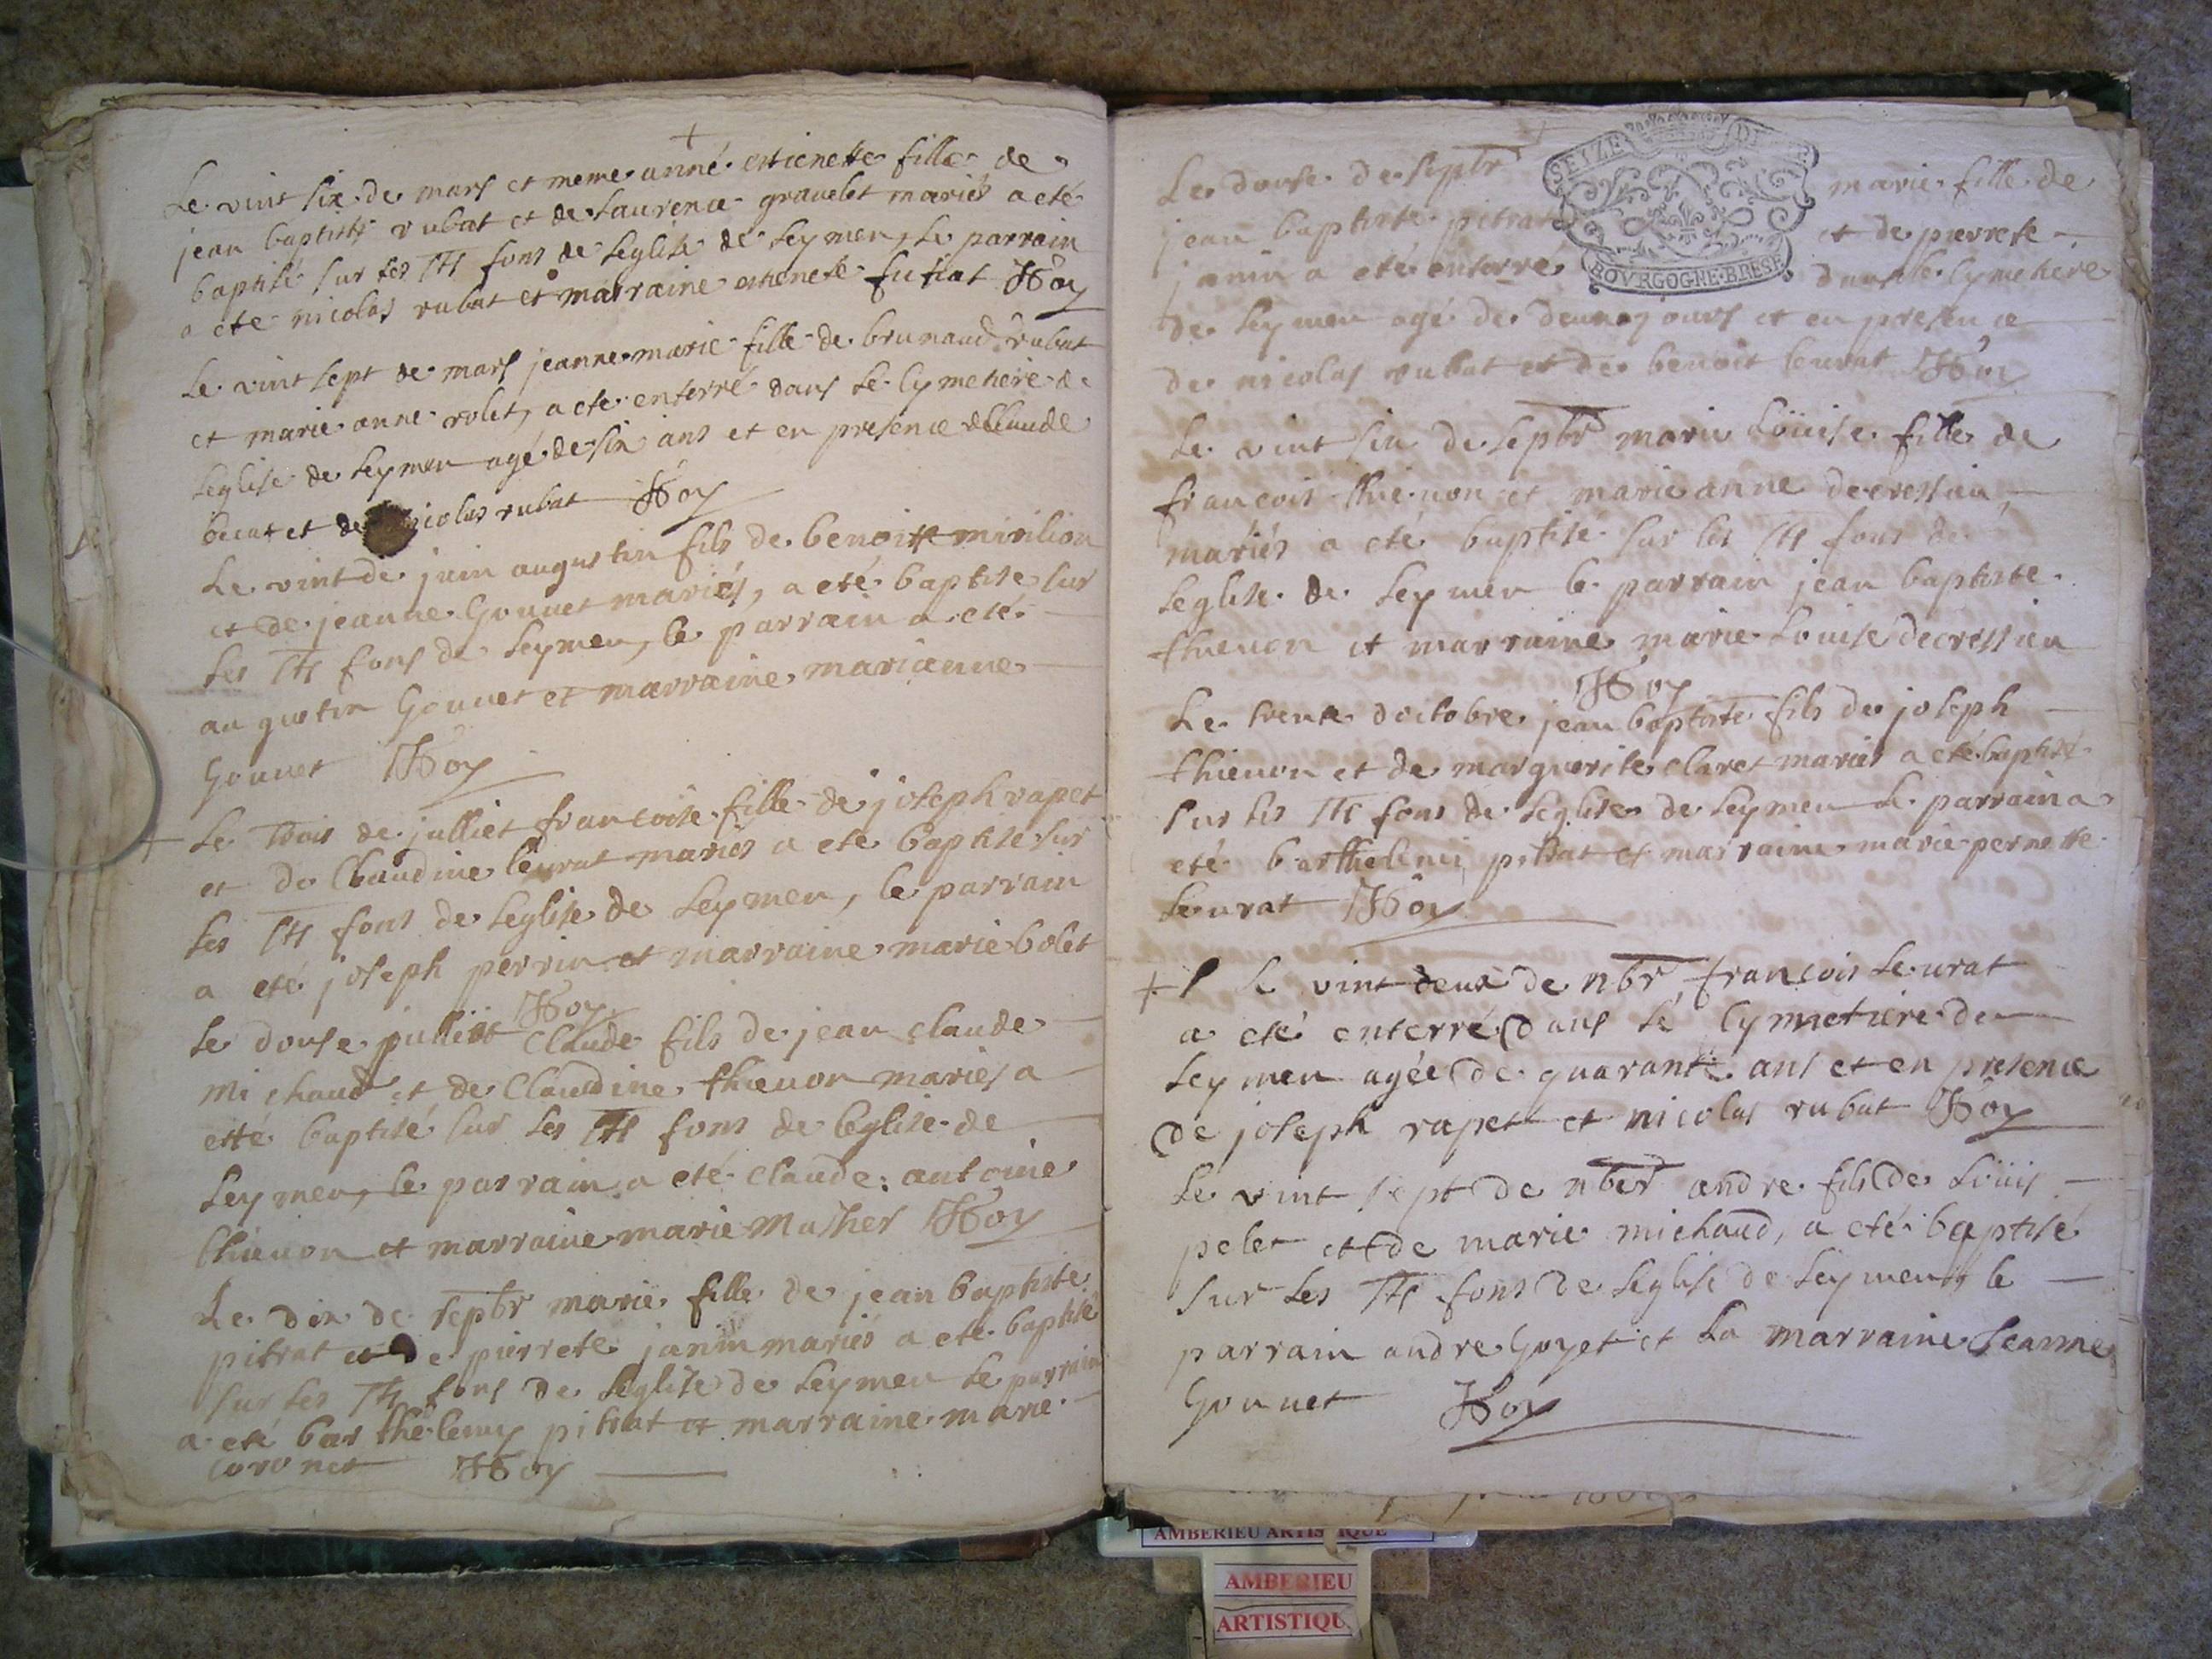 Le vint six de mars et meme anné estienette fille de
jean baptiste rubat et de laurence gravelet mariés a eté
baptisé sur les sts fons de leglise de leymen, le parrain
a eté nicolas rubat et marraine estienete futiat Roy
Le vint sept de mars jeanne marie fille de brunaud rubat
et marie anne rolet, a eté enterré dans le cymetiere de
leglise de leymen agé de six ans et en presence de claude
et de nicolas rubat Roy
Le vint de juin augustin fils de benoitt mirilion
et de jeanne Gonnet mariés, a eté baptisé sur
les sts fons de leymen, le parrain a eté
augustin Gonnet et marraine marianne
Gonnet Roy
Le trois de julliet francoise fille de joseph rapet
et de Claudine leurat mariés a eté baptisé sur
les sts fons de leglise de leymen, le parrain
a eté joseph perrin et marraine marie bolet
Roy
le douse julliet Claude fils de jean claude
Michaud et de Claudine thienon mariés a
etté baptisé sur les sts fons de leglise de
Leymen, le parrain a eté claude antoine
thienon et marraine marie Roy
Le dix de sepbr marie fille de jean baptiste
pitrat et de pierrete janin mariés a eté baptisé
sur les sts fons de leglise de leymen le parrain
a eté barthelemy pitrat et marraine marie
coronet Roy
SEIZE DE
BOURGOGNE BRESE
Le douse de sepbr marie fille de
jean baptiste pitrat et de pierrete
janin a eté enterré dans le cymetiere
de leymen agé de deux jours et en presence
de nicolas rubat et de benoit leurat Roy
Le vint six de sepbr marie Loüise fille de
francois thienon et marie anne decressieu
mariés a eté baptisé sur les sts fons de
leglise de leymen le parrain jean baptiste
thienon et marraine marie Louise decressieu
Roy
Le trente doctobre jean baptiste fils de joseph
thienon et de marguerite claret mariés a eté baptisé
sur les sts fons de leglise de leymen le parrain a
eté barthelemi pitrat et marraine marie pernette
leurat Roy
+ le vint deux de nbr francois leurat
a eté enterré dans le cymetiere de
Leymen agée de quarante ans et en presence
de joseph rapet et nicolas rubat Roy
Le vint sept de nbr andre fils de Loüis
pelet et de marie michaud, a eté baptisé
sur les sts fons de leglise de leymen, le
parrain andre Goyet et la marraine Jeanne
Gonnet Roy
AMBERIEU ARTISTIQUE
AMBERIEU
ARTISTIQU